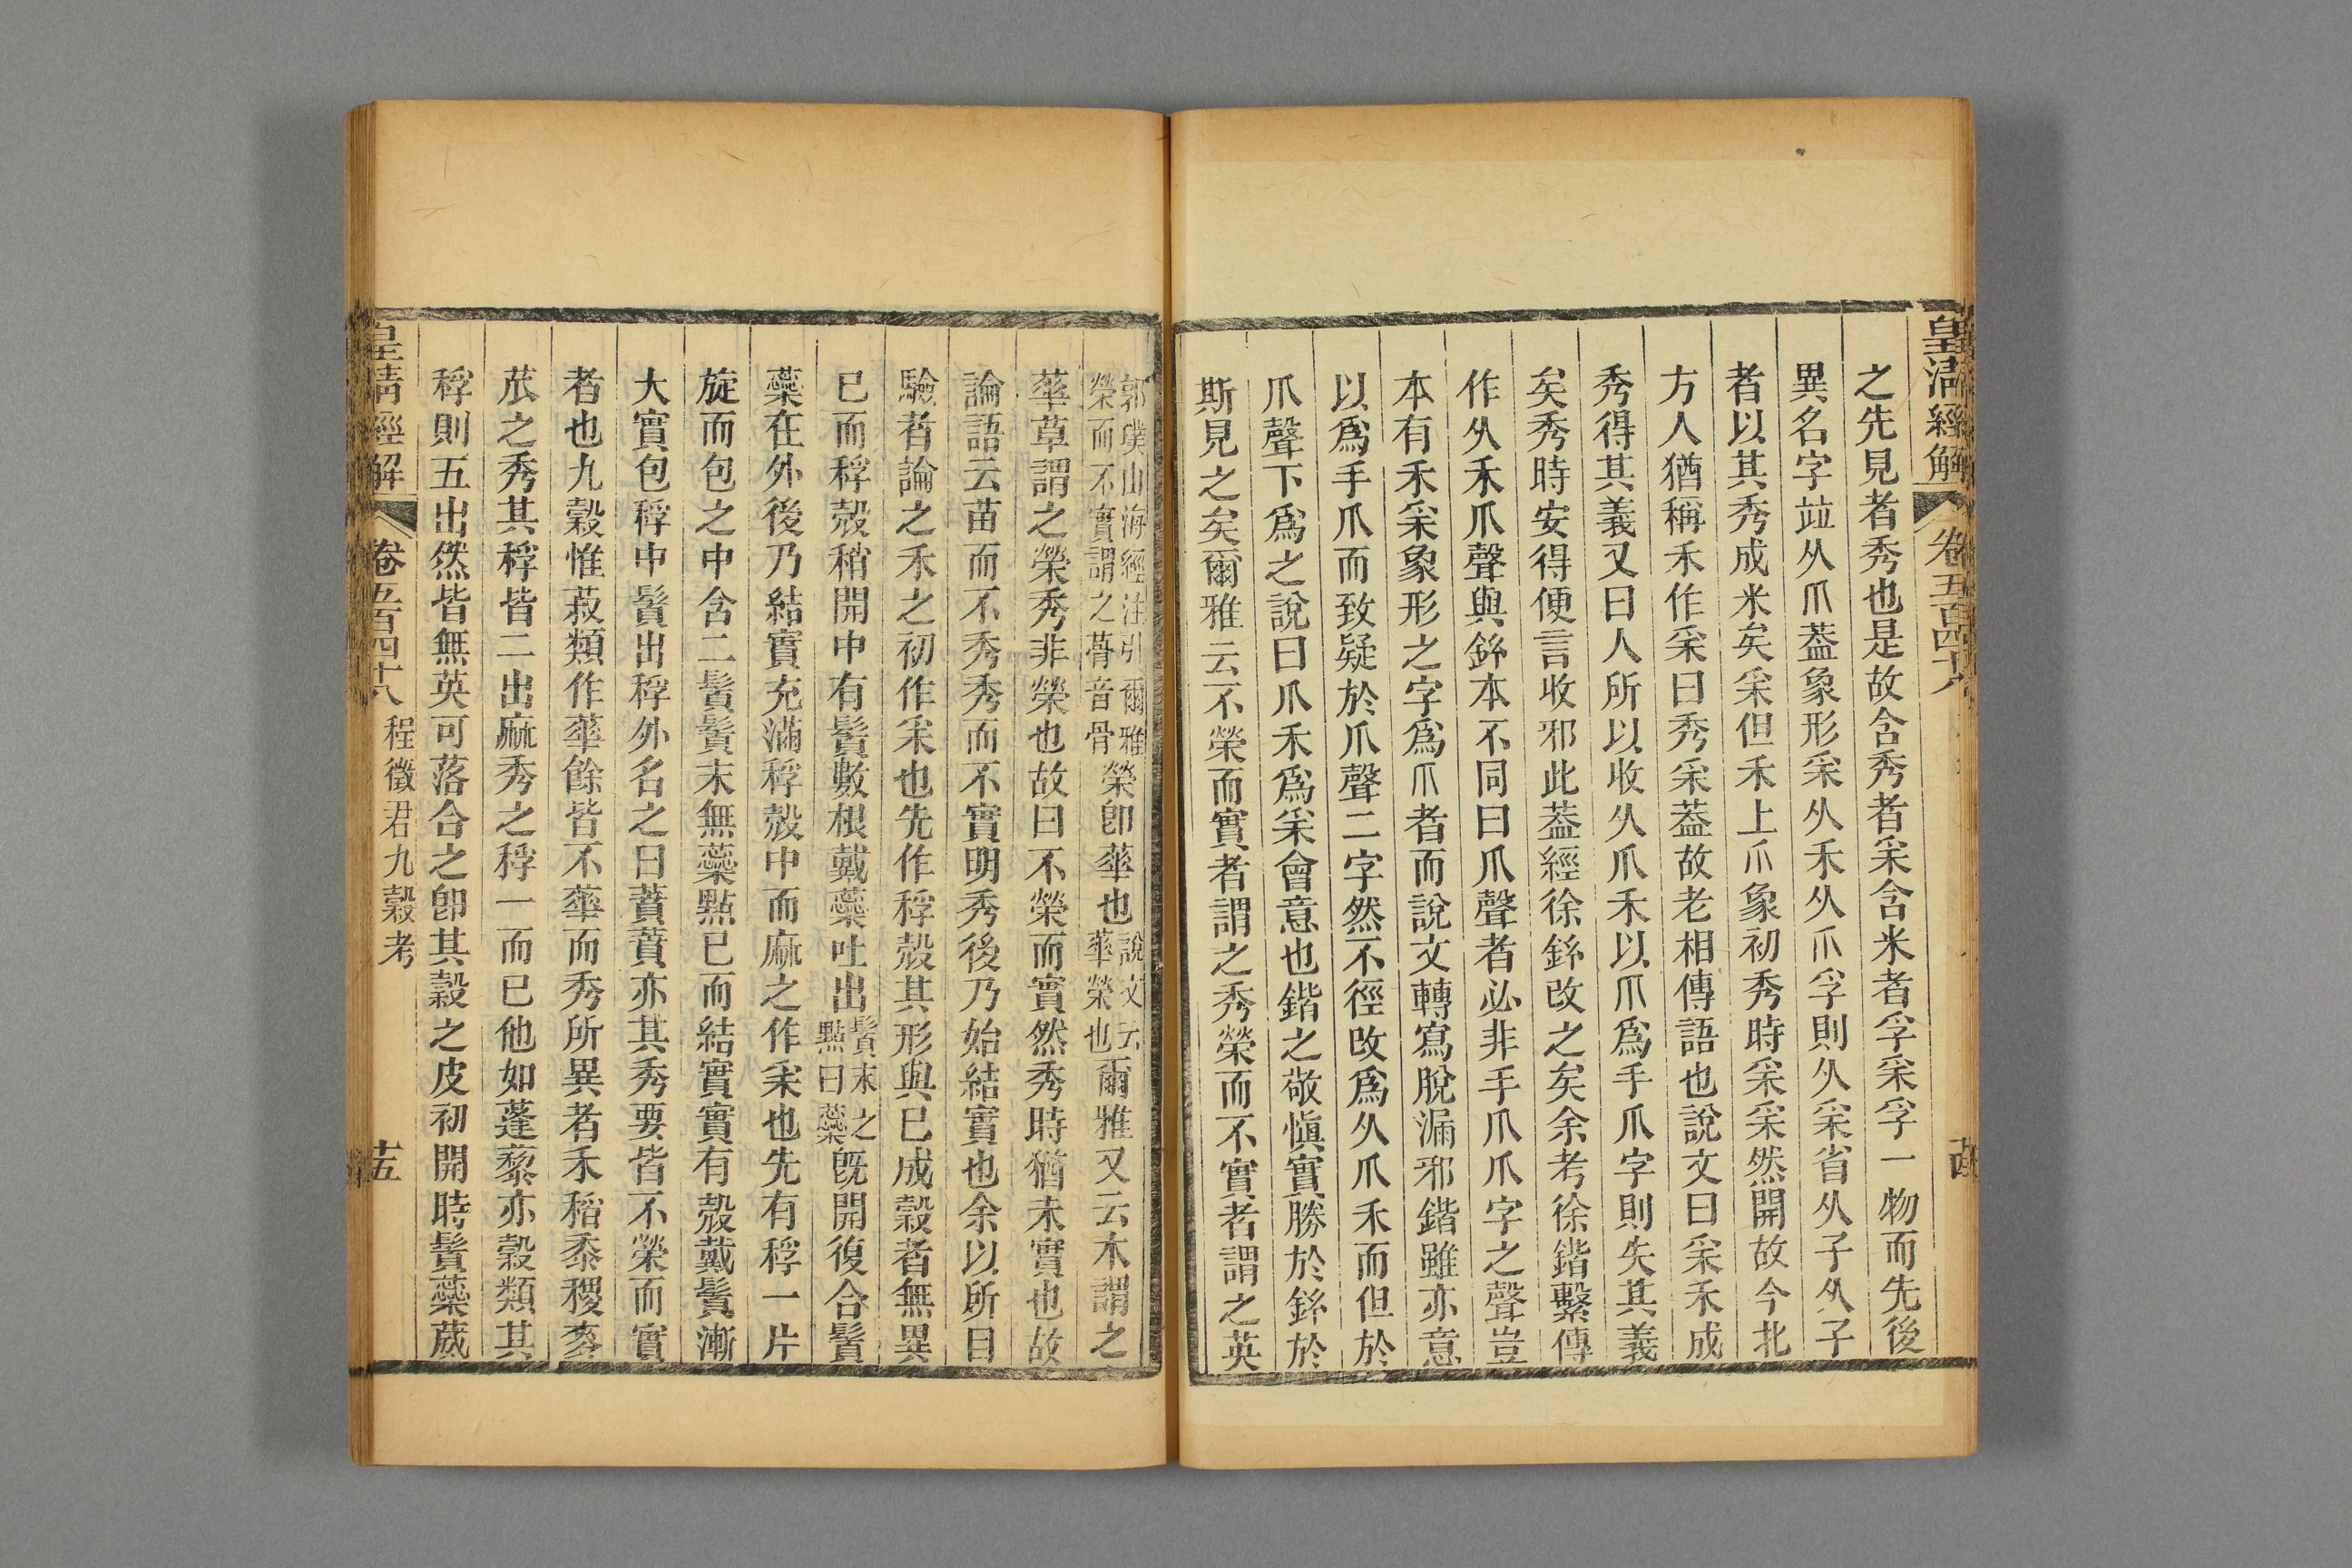 皇清經解
卷五百四十八
之先見者秀也是故含秀者采含米者孚采孚一物而先後
異名字竝从爪葢象形采从禾从爪孚則从采省从子从子
者以其秀成米矣采但禾上爪象初秀時采采然開故今北
方人猶稱禾作采曰秀采葢故老相傳語也說文曰采禾成
秀得其義又曰人所以收从爪禾以爪爲手爪字則失其義
矣秀時安得便言收邪此葢經徐鉉改之矣余考徐鍇繫傳
作从禾爪聲與鉉本不同曰爪聲者必非手爪爪字之聲豈
本有禾采象形之字爲爪者而說文轉寫脫漏邪鍇雖亦意
以爲手爪而致疑於爪聲二字然不徑改爲从爪禾而但於
爪聲下爲之說曰爪禾爲采會意也鍇之敬愼實勝於鉉於
斯見之矣爾雅云不榮而實者謂之秀榮而不實者謂之英
郭璞山海經注引爾雅
榮而不實謂之蓇音骨
榮卽華也
說文云
華榮也
爾雅又云木謂之
華草謂之榮秀非榮也故曰不榮而實然秀時猶未實也故
論語云苗而不秀秀而不實明秀後乃始結實也余以所目
驗者論之禾之初作采也先作稃殼其形與已成穀者無異
已而稃殼稍開中有鬚數根戴蘂吐出
鬚末之
點曰蘂
旣開復合鬚
蘂在外後乃結實充滿稃殼中而麻之作采也先有稃一片
旋而包之中含二鬚鬚末無蘂點已而結實實有殼戴鬚漸
大實包稃中鬚出稃外名之曰蕡蕡亦其秀要皆不榮而實
者也九穀惟菽類作華餘皆不華而秀所異者禾稻黍稷麥
苽之秀其稃皆二出麻秀之稃一而已他如蓬藜亦穀類其
稃則五出然皆無英可落合之卽其穀之皮初開時鬚蘂葳
皇清經解
卷五百四十八
程徵君九穀考
十五